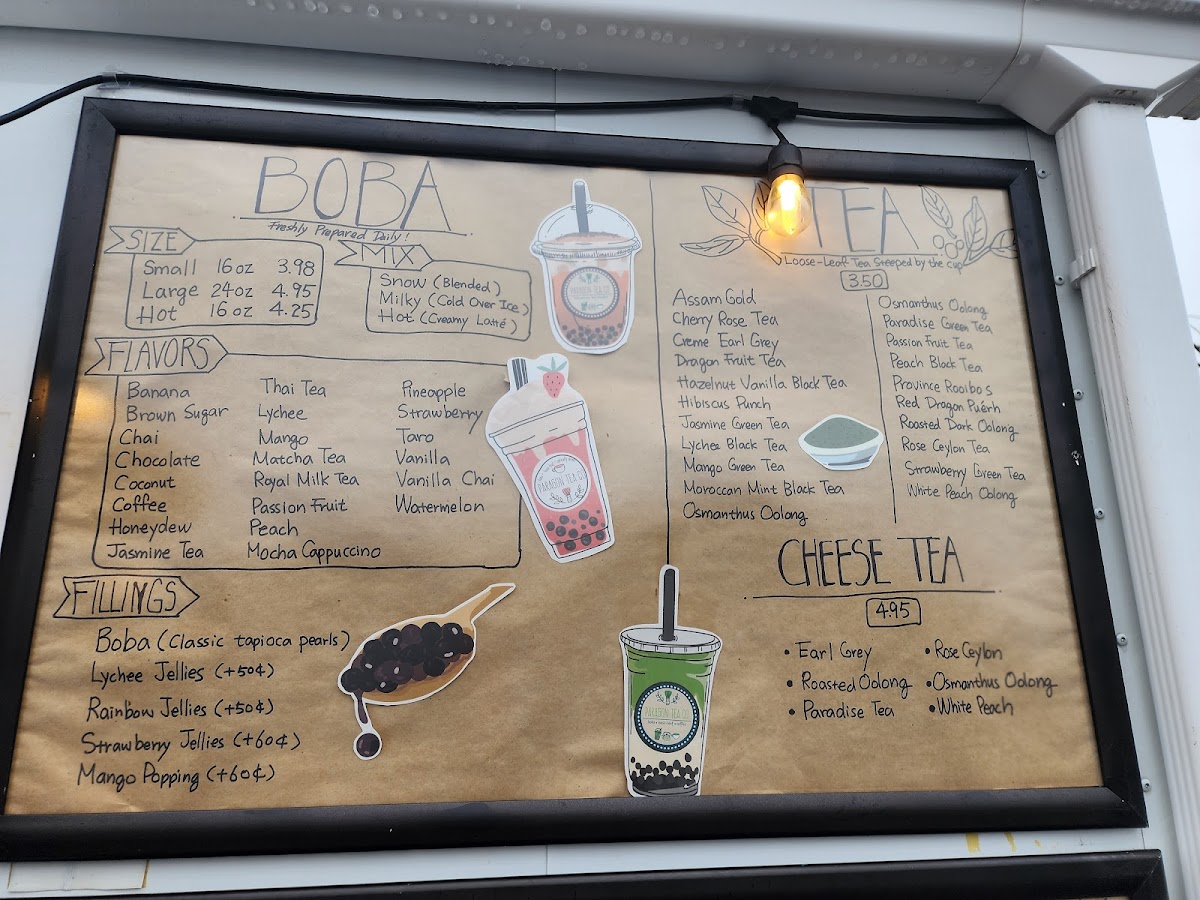 BOBA
Freshly Prepared Daily!
SIZE
Small 16oz 3.98
Large 24oz 4.95
Hot 16oz 4.25
MIX
Snow (Blended)
Milky (Cold Over Ice)
Hot (Creamy Latté)
FLAVORS
Banana
Brown Sugar
Chai
Chocolate
Coconut
Coffee
Honeydew
Jasmine Tea
Thai Tea
Lychee
Mango
Matcha Tea
Royal Milk Tea
Passion Fruit
Peach
Mocha Cappuccino
Pineapple
Strawberry
Taro
Vanilla
Vanilla Chai
Watermelon
FILLINGS
Boba (Classic tapioca pearls)
Lychee Jellies (+50¢)
Rainbow Jellies (+50¢)
Strawberry Jellies (+60¢)
Mango Popping (+60¢)
PARAGON TEA CO.
PARAGON TEA CO.
PARAGON TEA CO.
TEA
Loose-Leaf Tea Steeped by the cup
3.50
Assam Gold
Cherry Rose Tea
Creme Earl Grey
Dragon Fruit Tea
Hazelnut Vanilla Black Tea
Hibiscus Punch
Jasmine Green Tea
Lychee Black Tea
Mango Green Tea
Moroccan Mint Black Tea
Osmanthus Oolong
Osmanthus Oolong
Paradise Green Tea
Passion Fruit Tea
Peach Black Tea
Province Rooibos
Red Dragon Puérh
Roasted Dark Oolong
Rose Ceylon Tea
Strawberry Green Tea
White Peach Oolong
CHEESE TEA
4.95
• Earl Grey
• Roasted Oolong
• Paradise Tea
• Rose Ceylon
• Osmanthus Oolong
• White Peach